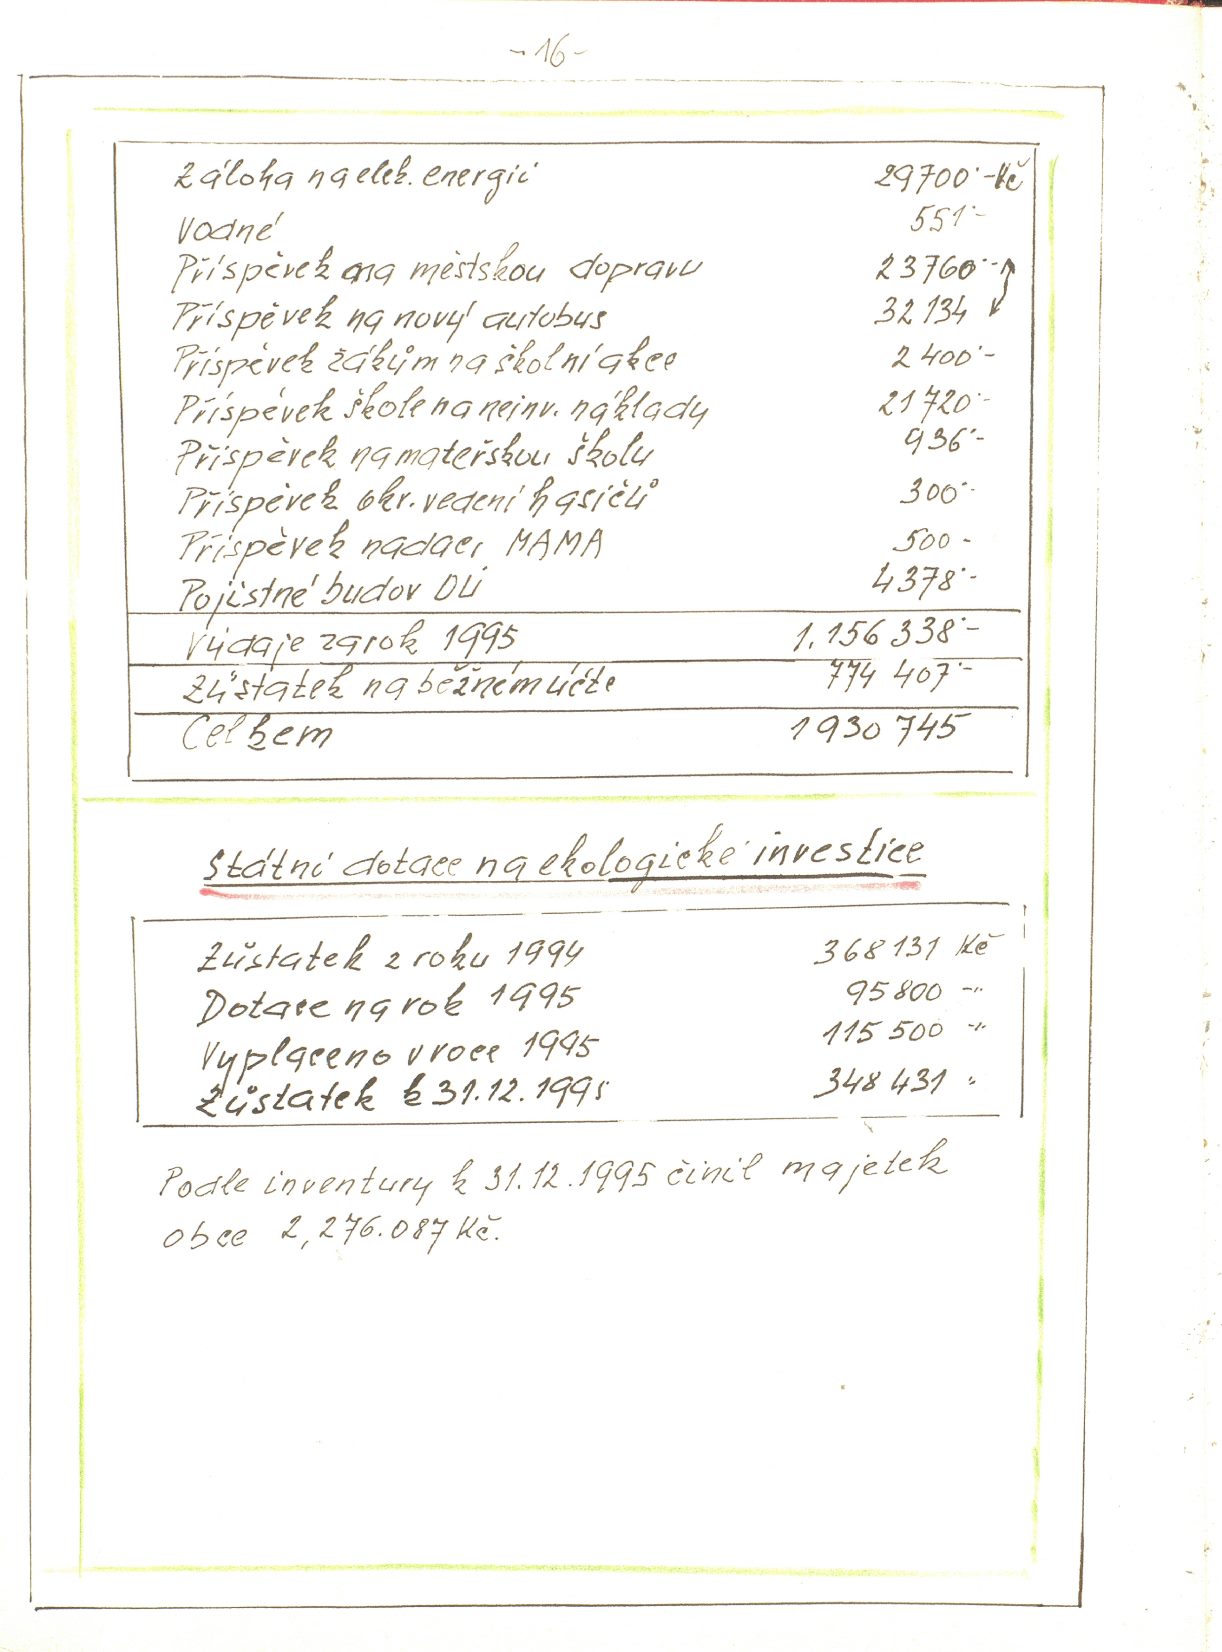 - 16 -
Záloha na elek. energii 29700.- Kč
Vodné 551.-
Příspěvek na městskou dopravu 23760.-
Příspěvek na nový autobus 32134
Příspěvek žákům na školní akce 2400.-
Příspěvek škole na neinv. náklady 21720.-
Příspěvek na mateřskou školu 936.-
Příspěvek okr. vedení hasičů 300.-
Příspěvek nadaci MAMA 500 -
Pojistné budov OÚ 4378.-
Výdaje za rok 1995 1.156338.-
Zůstatek na běžném účte 774 407.-
Celkem 1930 745
Státní dotace na ekologické investice
Zůstatek z roku 1994 368131 Kč
Dotace na rok 1995 95800 -"-
Vyplaceno v roce 1995 115500 -"
Zůstatek k 31.12.1995 348431 "
Podle inventury k 31.12.1995 činil majetek
obce 2,276.087 Kč.